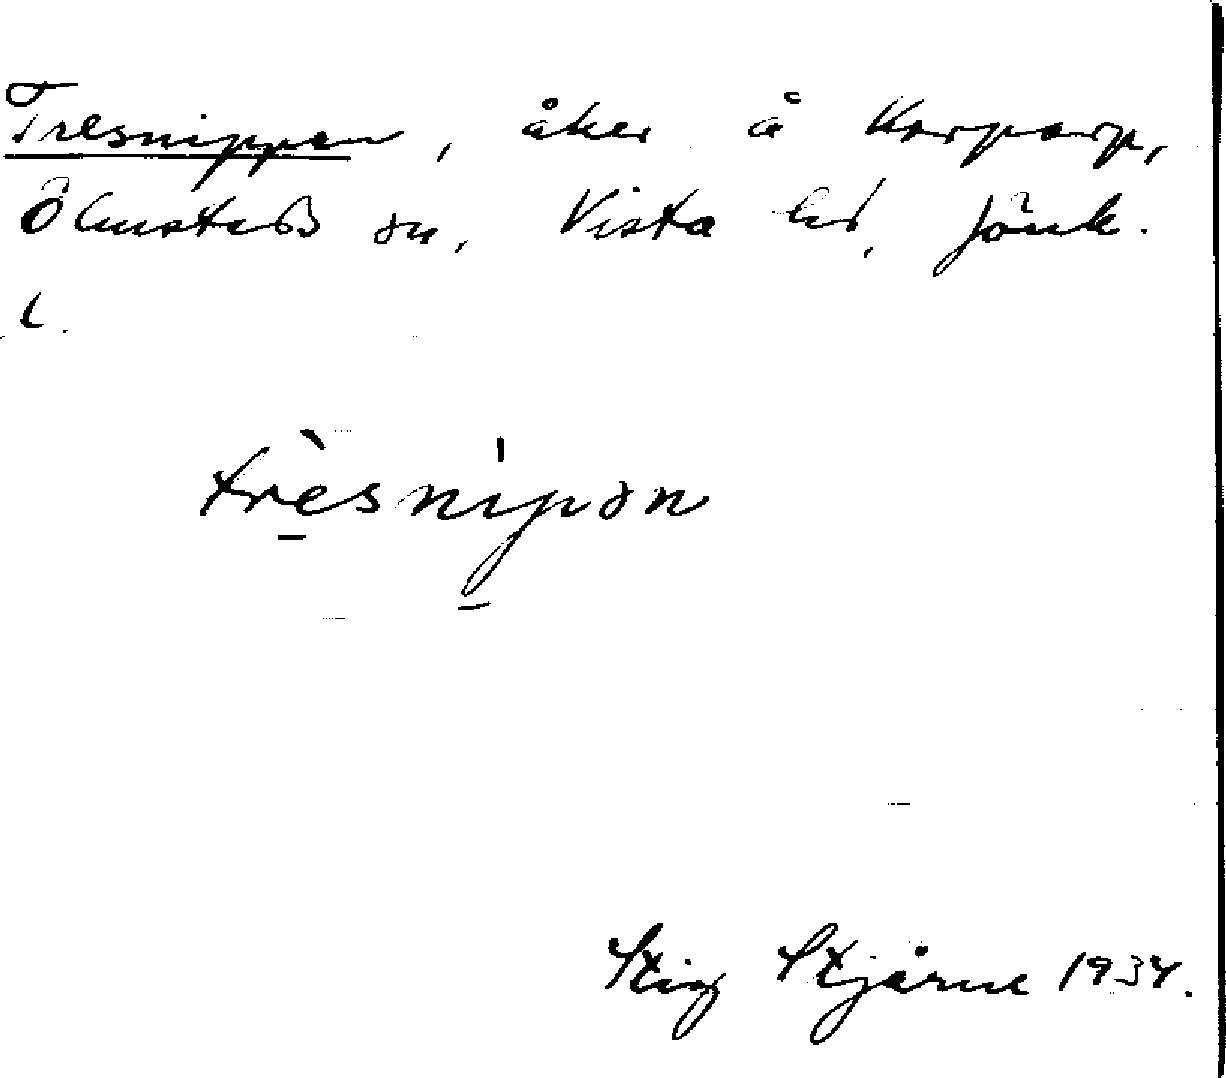 Tresnippen, åker å Korparp,
Ölmstads sn, Vista hd, Jönk.
L.
trèsnipən
Stig Stjärne 1934.